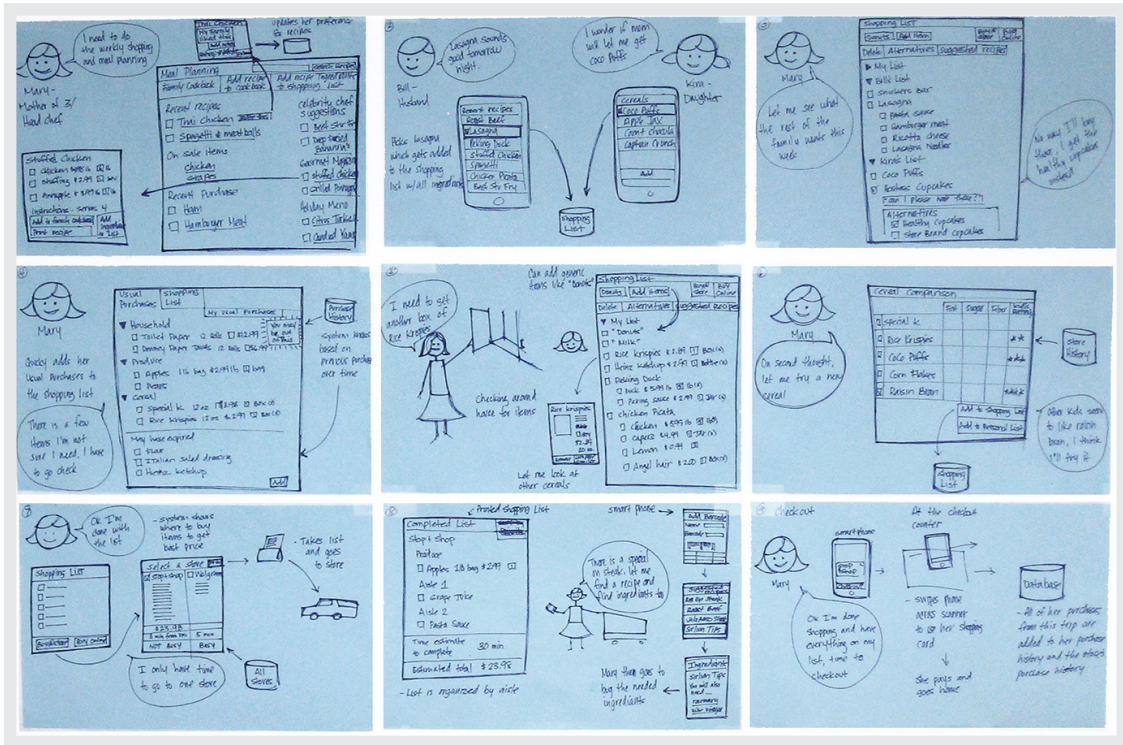 I need to do
the weekly shopping
and meal planning
Mary-
Mother of 3/
Head chef
Thai Chicken
updates her preference
for recipes
Meal Planning
Family Cookbook
Add recipe
to cookbook
Add recipe Ingredients
to shopping List
Recent recipes
Thai Chicken
Spagetti & meat balls
On sale items
chicken
grapes
Recent Purchase
Ham
Hamburger Meat
celebrity chef
suggestions
Beef Stir Fry
stuffed chicken
Holiday Menu
Citrus Turkey
Candied Yams
Stuffed Chicken
Stuffing $2.99
Instructions - serves 4
Add to family cookbook
Print recipe
Add
Ingredients
to List
Lasagna sounds
good tomorrow
night.
Bill -
Husband
Picks lasagna
which gets added
to the shopping
list w/all ingredients
Recent recipes
Roast Beef
Lasagna
Peking Duck
Stuffed Chicken
Spagetti
Chicken Picata
Beef Stir Fry
I wonder if mom
will let me get
coco Puffs
Kira-
Daughter
Cereals
Coco Puffs
Apple Jax
Count Chocula
Captian Crunch
Add
Shopping
List
Mary
Let me see what
the rest of the
family wants this
week
Shopping List
Donuts
Add Item
Buy
Online
Delete
Alternatives
suggested recipes
My List
Bill's List
Snickers Bar
Lasagna
pasta sauce
Hamburger meat
Ricotta cheese
Lasagna Noodles
Kira's List
Coco Puffs
Hostess Cupcakes
Can I Please have these?
Alternatives
Healthy cupcakes
Store Brand cupcakes
No way I'll buy
those, I get the
healthy cupcakes
instead
Mary
Quickly adds her
usual purchases to
the shopping list
There is a few
items I'm not
sure I need, I have
to go check
Usual
Purchases
Shopping
List
My usual Purchases
You may
be out
of this
Household
Toilet Paper 12 Rolls $12.99
Produce
Apples 1 lb bag $2.99 bag
Pears
Cereal
Special K 12 oz
Rice krispies 12 oz $2.99 Box(s)
May have expired
Flour
Italian salad dressing
Heinz ketchup
Add
Purchase
History
based on
previous purchases
over time
I need to get
another box of
Rice Krispies
Can add generic
items like "Donuts"
checking around
house for items
Rice krispies
Let me look at
other cereals
Shopping List
Donuts
Add items
Buy
Online
Delete
Alternatives
suggested recipes
My List
"Donuts"
"Milk"
Rice krispies $2.89 Box(s)
Heinz Ketchup $2.99 Bottle(s)
Peking Duck
Duck $5.99 lb
Peking sauce $2.99 Jar(s)
chicken Picata
chicken $5.99 lb
capers $4.99 Jar(s)
Lemon $0.99
Angel hair $2.00 Box(s)
Mary
On second thought,
let me try a new
cereal
Cereal Comparison
Fat
Sugar
Fiber
Special K
Rice Krispies
Coco Puffs
Corn Flakes
Raisin Bran
Add to Shopping List
Add to Personal List
Store
History
Other kids seem
to like raisin
bran, I think
I'll try it
Shopping
List
Ok I'm
done with
the list
Shopping List
Buy Online
- system shows
where to buy
items to get
best price
Select a store
Stop & shop
Walgreens
$23.98
5 min
NOT BUSY
BUSY
I only have time
to go to one store
All
Stores
- Takes
list
and goes
to store
Printed Shopping List
Completed List
Stop & Shop
Produce
Apples 2lB bag $2.99
Aisle 1
Grape Juice
Aisle 2
Pasta Sauce
Time estimate
to complete
30 min
Estimated total $23.98
- List is organized by aisle
smart phone
There is a special
on steak, let me
find a recipe and
find ingredients to
Add Barcode
Suggested
Recipes
Roast Beef
Sirloin Tips
Ingredients
Sirloin Tips
You will also
need...
rosemary
Mary then goes to
buy the needed
ingredients
checkout
Mary
Ok I'm done
shopping and have
everything on my
list, time to
checkout
smart phone
At the checkout
counter
- swipes phone
across scanner
to use her shopping
card
She pays and
goes home
Database
- All of her purchases
from this trip are
added to her purchase
history and the store's
purchase history